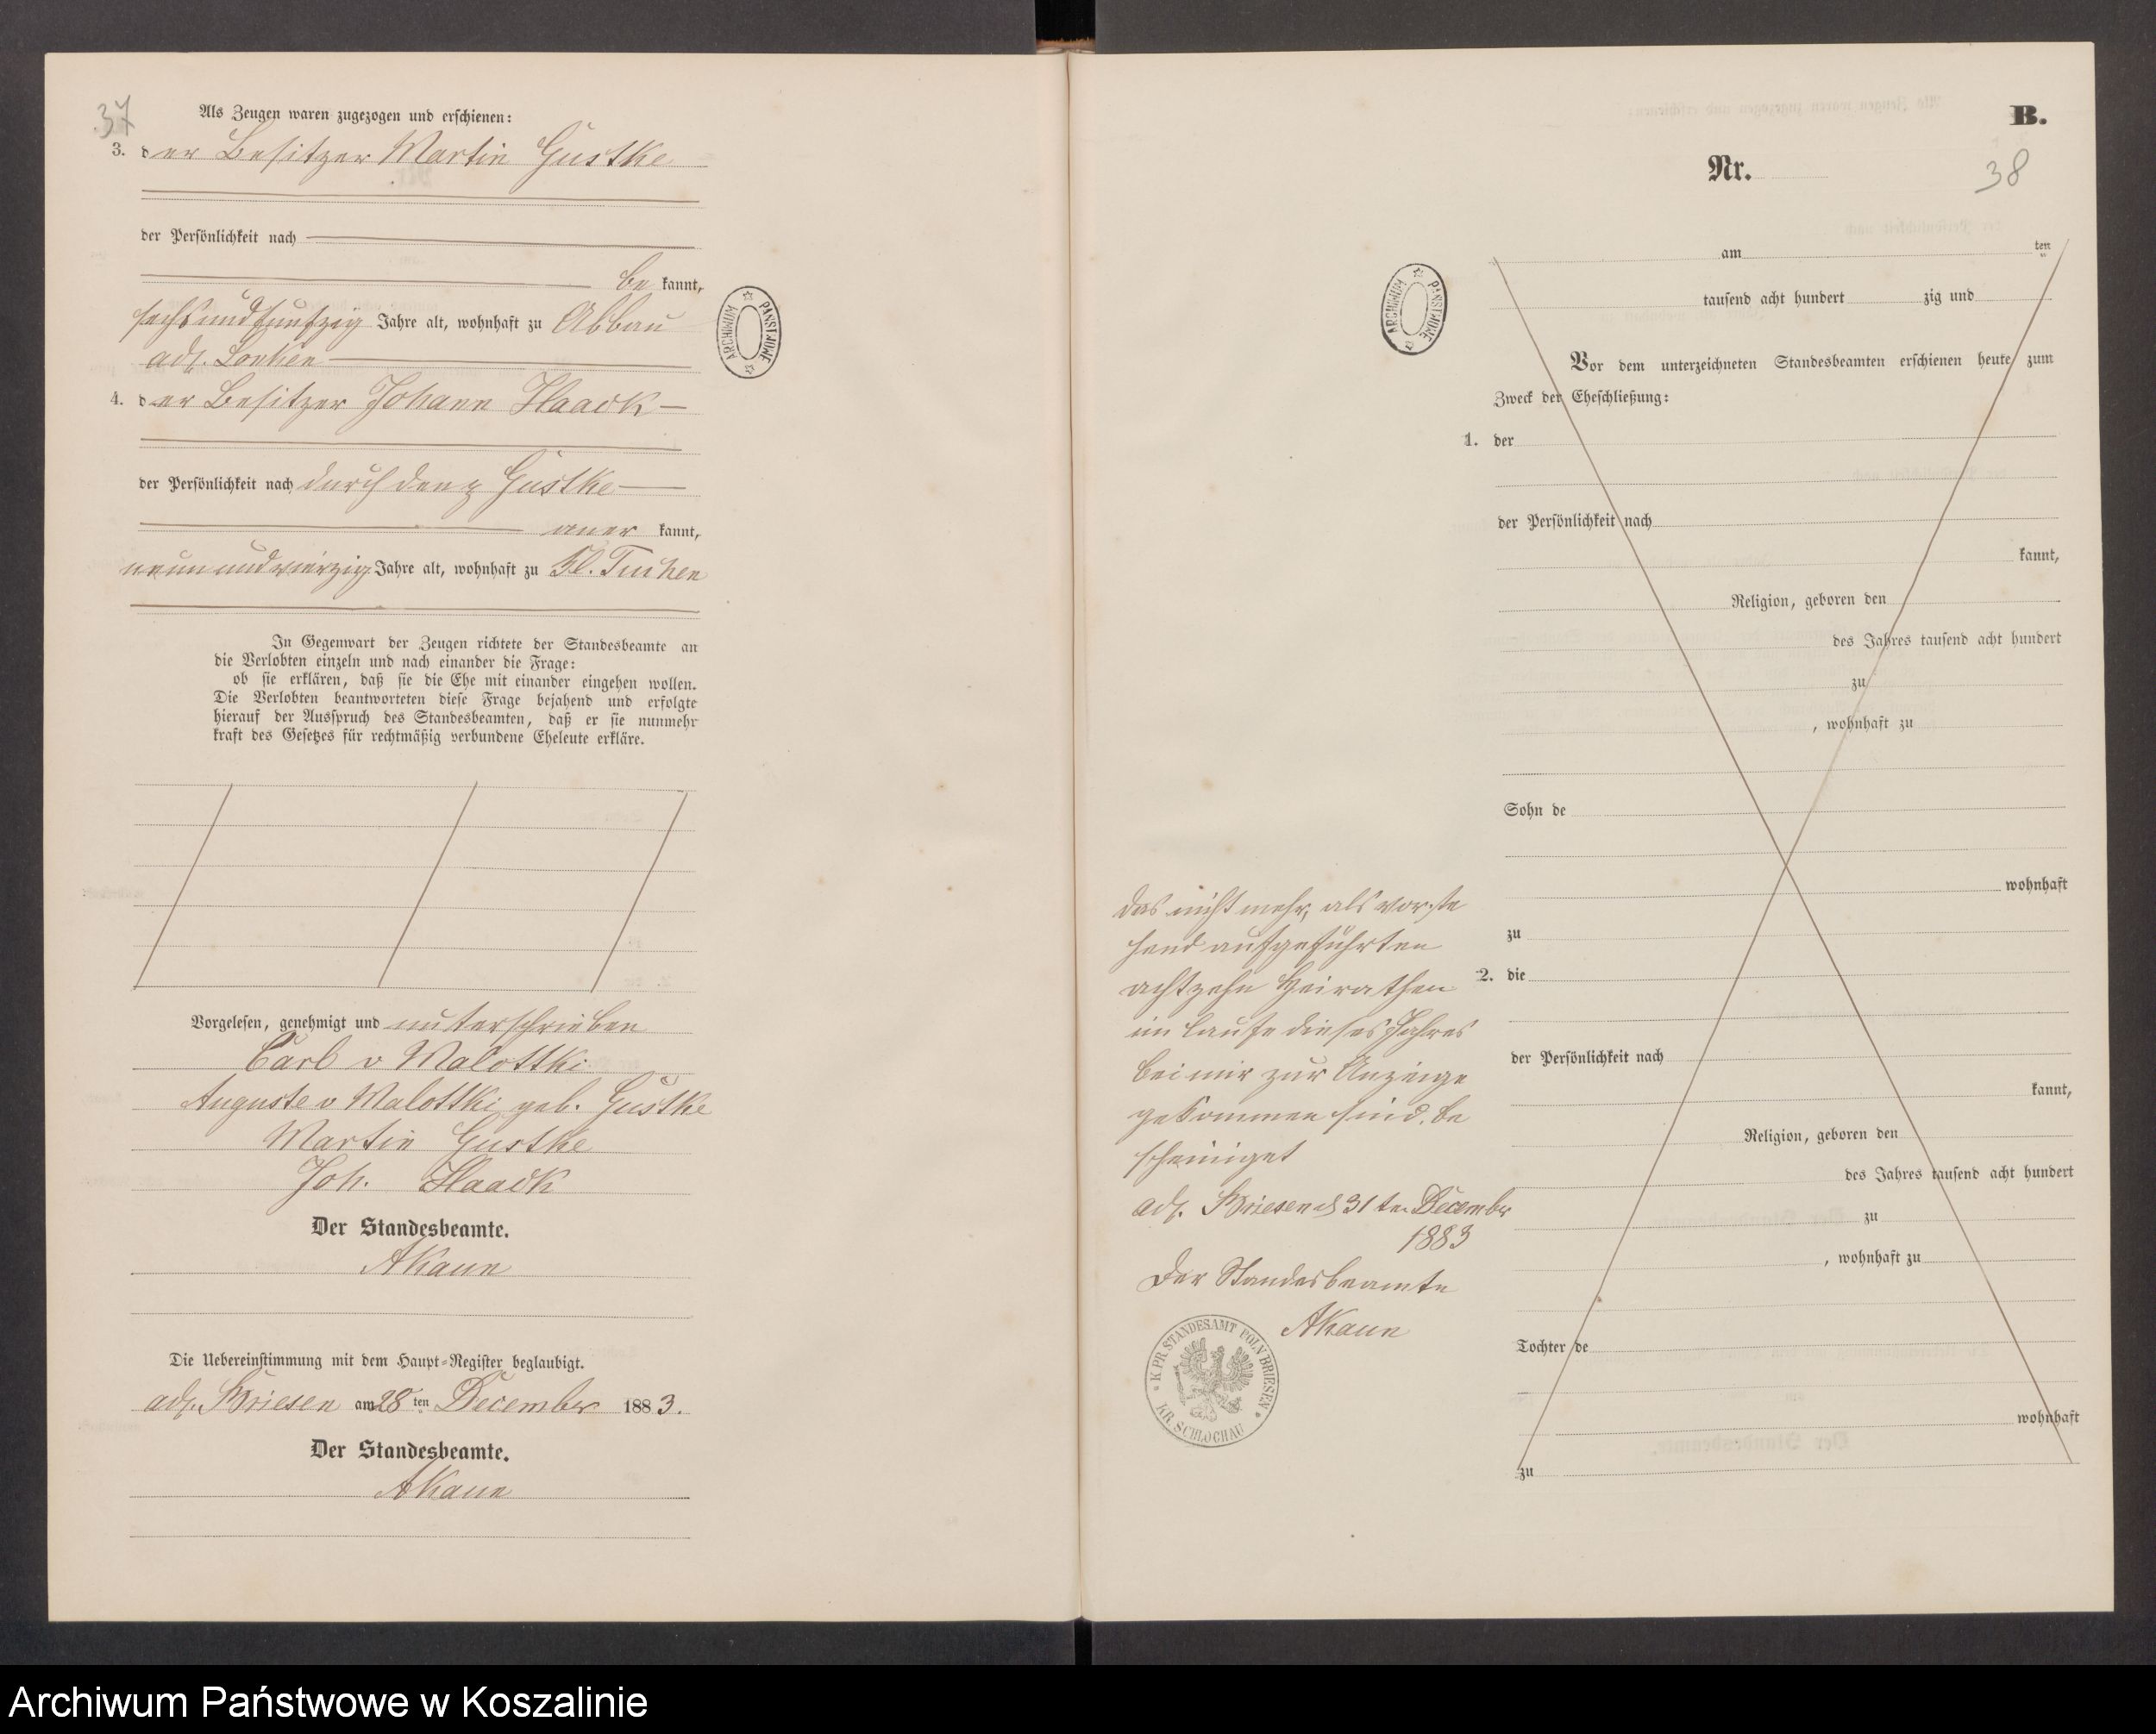 37
Als Zeugen waren zugezogen und erschienen:
3. der Besitzer Martin Gustke
der Persönlichkeit nach
be kannt,
sechsundfunfzig Jahre alt, wohnhaft zu Abbau
adl. Lonken
4. der Besitzer Johann Haack
der Persönlichkeit nach durch den p Gustke
aner kannt,
neunundvierzig Jahre alt, wohnhaft zu Kl. Tuchen
In Gegenwart der Zeugen richtete der Standesbeamte an
die Verlobten einzeln und nach einander die Frage:
ob sie erklären, daß sie die Ehe mit einander eingehen wollen.
Die Verlobten beantworteten diese Frage bejahend und erfolgte
hierauf der Ausspruch des Standesbeamten, daß er sie nunmehr
kraft des Gesetzes für rechtmäßig verbundene Eheleute erkläre.
Vorgelesen, genehmigt und unterschrieben
Carl v Malottki
Auguste v Malottki geb. Gustke
Martin Gustke
Joh. Haack
Der Standesbeamte.
Die Uebereinstimmung mit dem Haupt-Register beglaubigt.
adl. Briesen am 28 ten December 1883.
Der Standesbeamte.
ARCHIWUM PAŃSTWOWE
B.
Nr.
38
ARCHIWUM PAŃSTWOWE
am ten
tausend acht hundert zig und
Vor dem unterzeichneten Standesbeamten erschienen heute zum
Zweck der Eheschließung:
1. der
der Persönlichkeit nach
kannt,
Religion, geboren den
des Jahres tausend acht hundert
zu
, wohnhaft zu
Sohn de
wohnhaft
zu
2. die
der Persönlichkeit nach
kannt,
Religion, geboren den
des Jahres tausend acht hundert
zu
, wohnhaft zu
Tochter de
wohnhaft
zu
Das nicht mehr, als vorste
hend aufgeführten
achtzehn Heirathen
im Laufe dieses Jahres
bei mir zur Anzeige
gekommen sind, be
scheiniget
adl. Briesen d 31 ten December
1883
Der Standesbeamte
K. PR. STANDESAMT POLN BRIESEN
KR. SCHLOCHAU
Archiwum Państwowe w Koszalinie